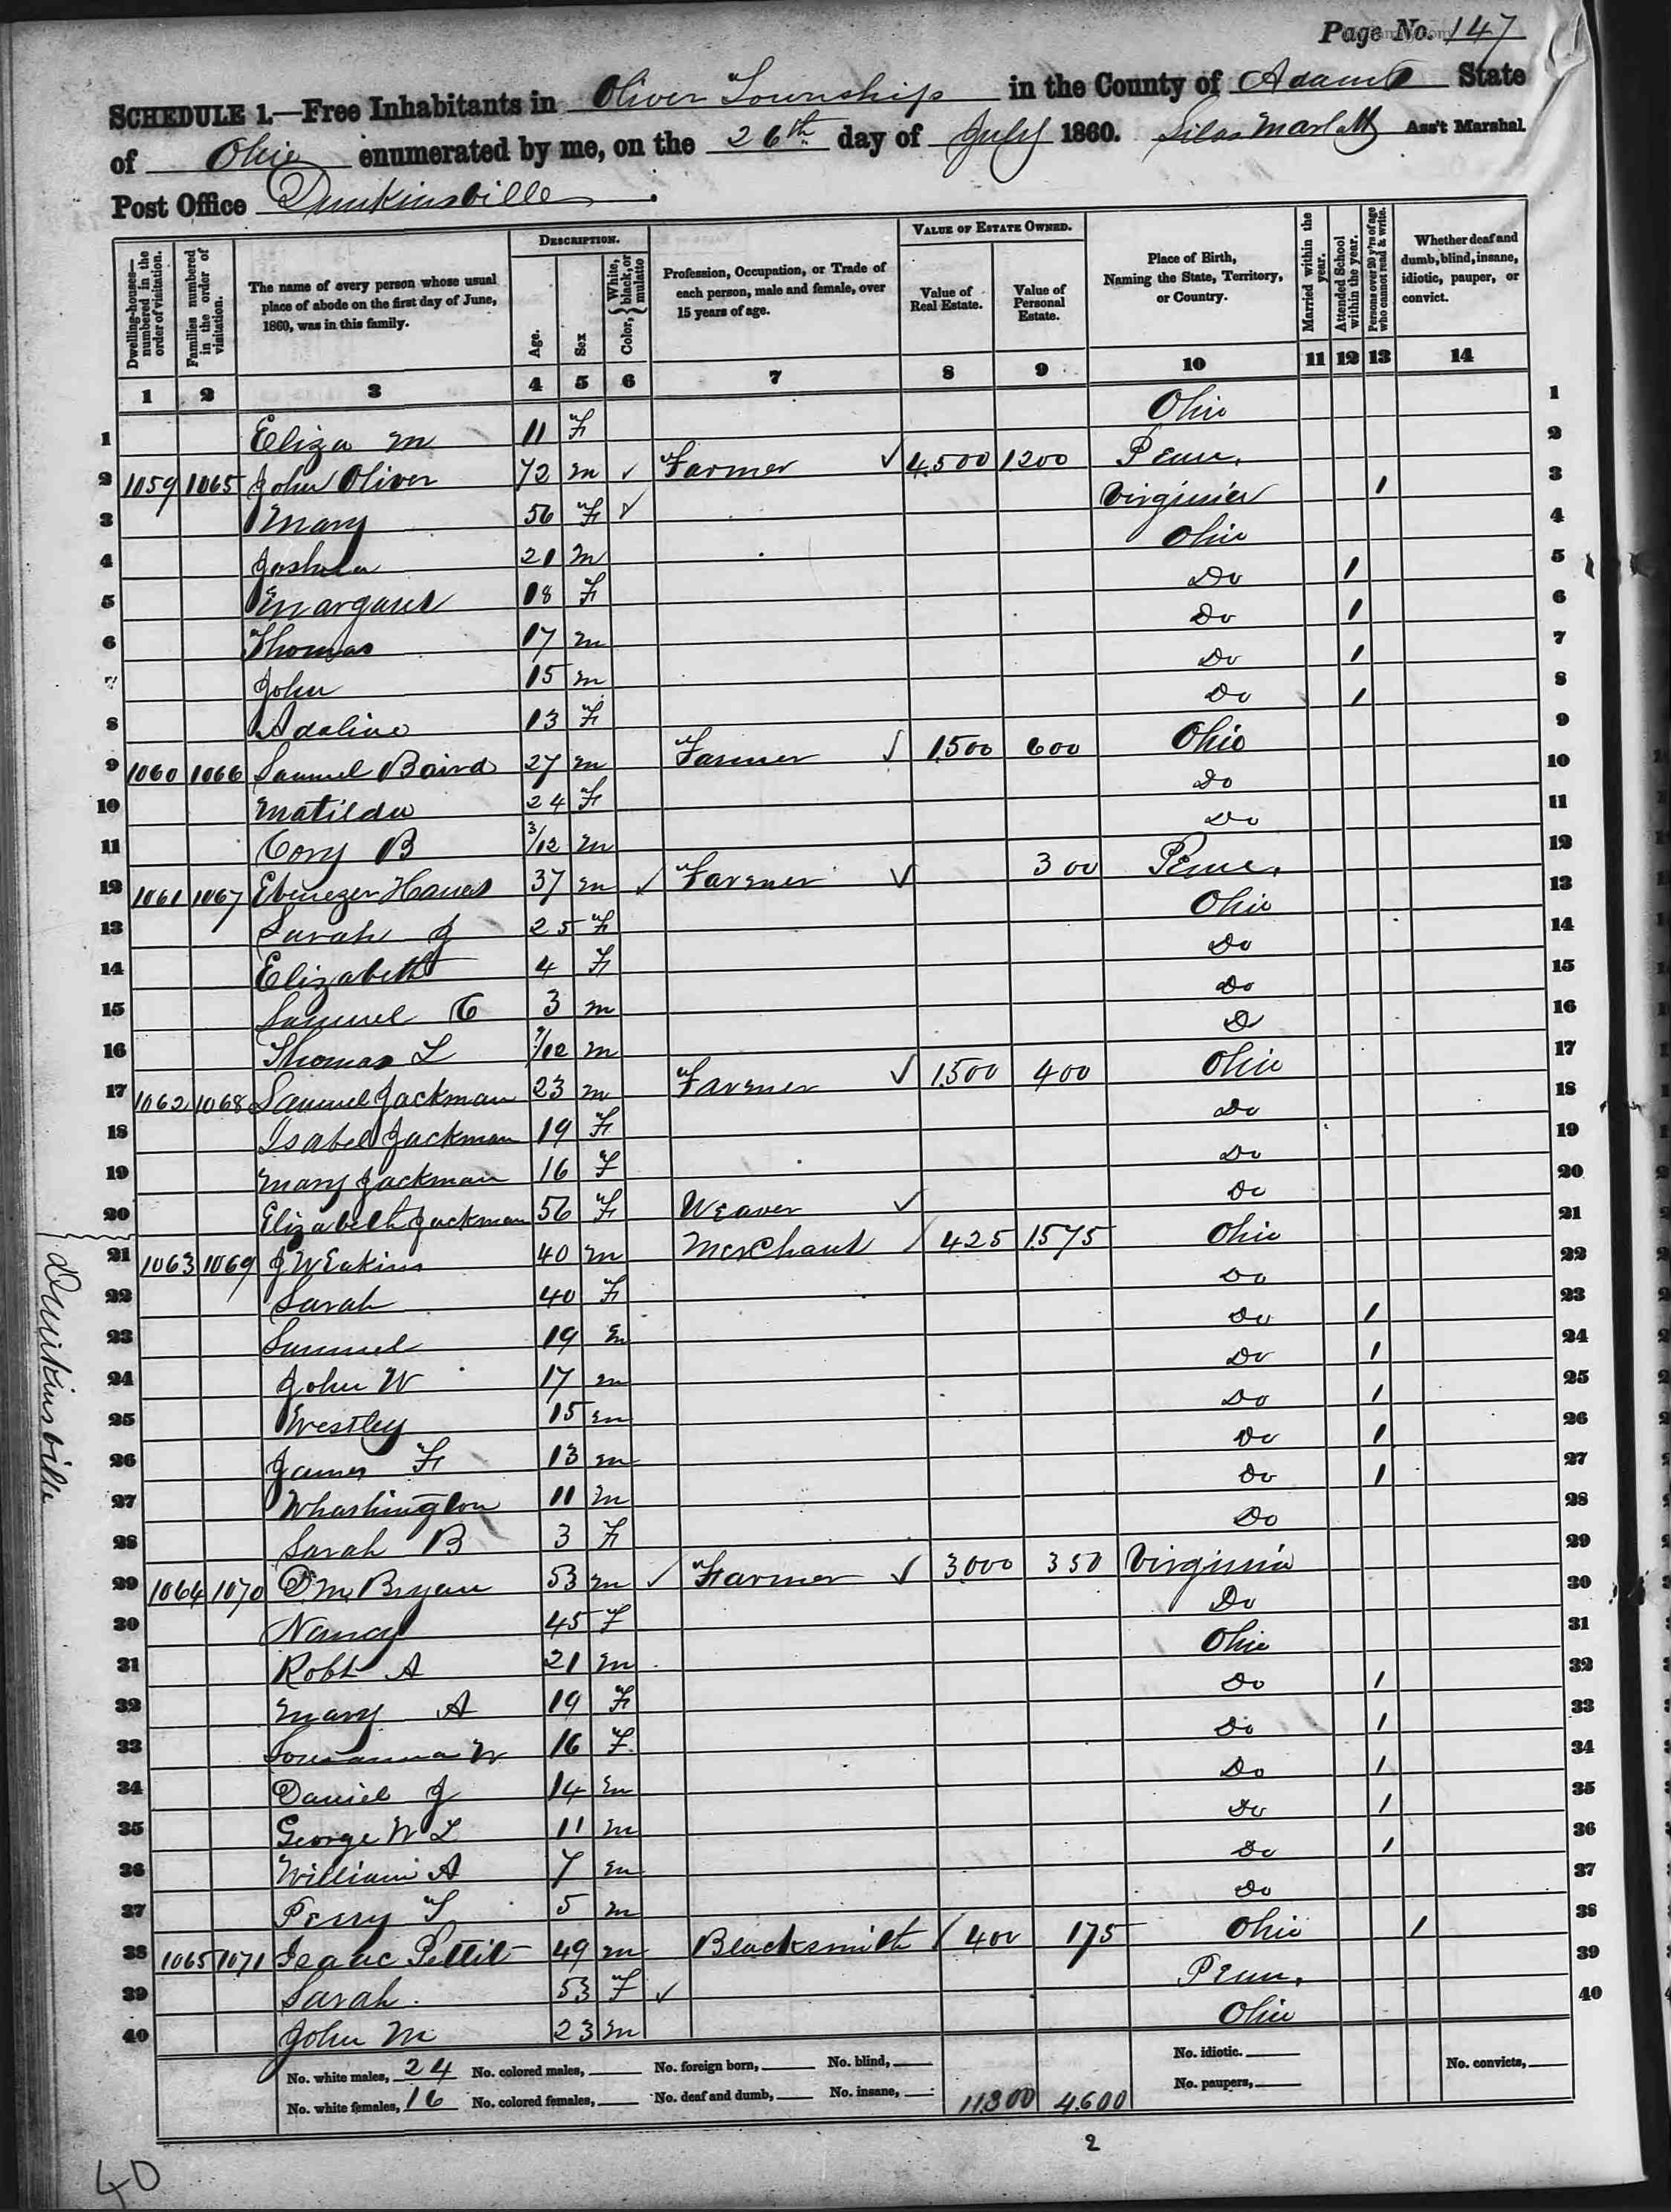 Page No. 147
SCHEDULE 1.—Free Inhabitants in Oliver Township in the County of Adams State
of Ohio enumerated by me, on the 26th day of July 1860. Silas Marlatt Ass't Marshal.
Post Office Dunkinsville.
Dwelling-houses—numbered in the order of visitation.
Families numbered in the order of visitation.
The name of every person whose usual place of abode on the first day of June, 1860, was in this family.
DESCRIPTION.
Age.
Sex
Color, { White, black, or mulatto
Profession, Occupation, or Trade of each person, male and female, over 15 years of age.
VALUE OF ESTATE OWNED.
Value of Real Estate.
Value of Personal Estate.
Place of Birth, Naming the State, Territory, or Country.
Married within the year.
Attended School within the year.
Persons over 20 y'rs of age who cannot read & write.
Whether deaf and dumb, blind, insane, idiotic, pauper, or convict.
1 2 3 4 5 6 7 8 9 10 11 12 13 14
1 Eliza M 11 F Ohio 1
2 1059 1065 John Oliver 72 m ✓ Farmer ✓ 4,500 1200 Penn. 2
3 Mary 56 F ✓ Virginia 1 3
4 Joshua 21 m Ohio 4
5 Margaret 18 F Do 1 5
6 Thomas 17 m Do 1 6
7 John 15 m Do 1 7
8 Adaline 13 F Do 1 8
9 1060 1066 Samuel Baird 27 m Farmer ✓ 1,500 600 Ohio 9
10 Matilda 24 F Do 10
11 Cory B 3/12 m Do 11
12 1061 1067 Ebenezer 37 m ✓ Farmer ✓ 300 Penn. 12
13 Sarah J 25 F Ohio 13
14 Elizabeth 4 F Do 14
15 Samuel C 3 m Do 15
16 Thomas L 7/12 m D 16
17 1062 1068 Samuel Jackman 23 m Farmer ✓ 1,500 400 Ohio 17
18 Isabel Jackman 19 F Do 18
19 Mary Jackman 16 F Do 19
20 Elizabeth Jackman 56 F Weaver ✓ Do 20
Dunkinsville
21 1063 1069 J W Eakins 40 m Merchant / 425 1,575 Ohio 21
22 Sarah 40 F Do 22
23 Samuel 19 m Do 1 23
24 John W 17 m Do 1 24
25 Westley 15 m Do 1 25
26 James F 13 m Do 1 26
27 Whashington 11 m Do 1 27
28 Sarah B 3 F Do 28
29 1064 1070 D. M. Bryan 53 m ✓ Farmer ✓ 3,000 350 Virginia 29
30 Nancy 45 F Do 30
31 Robt A 21 m Ohio 31
32 Mary A 19 F Do 1 32
33 W 16 F Do 1 33
34 Daniel J 14 m Do 1 34
35 George W L 11 m Do 1 35
36 William A 7 m Do 1 36
37 Perry T 5 m Do 37
38 1065 1071 Isaac Pettit 49 m Blacksmith / 400 175 Ohio 1 38
39 Sarah. 53 F ✓ Penn. 39
40 John M 23 m Ohio 40
No. white males, 24 No. colored males, No. foreign born, No. blind, No. idiotic. No. convicts,
No. white females, 16 No. colored females, No. deaf and dumb, No. insane, 11,300 4,600 No. paupers,
2
40